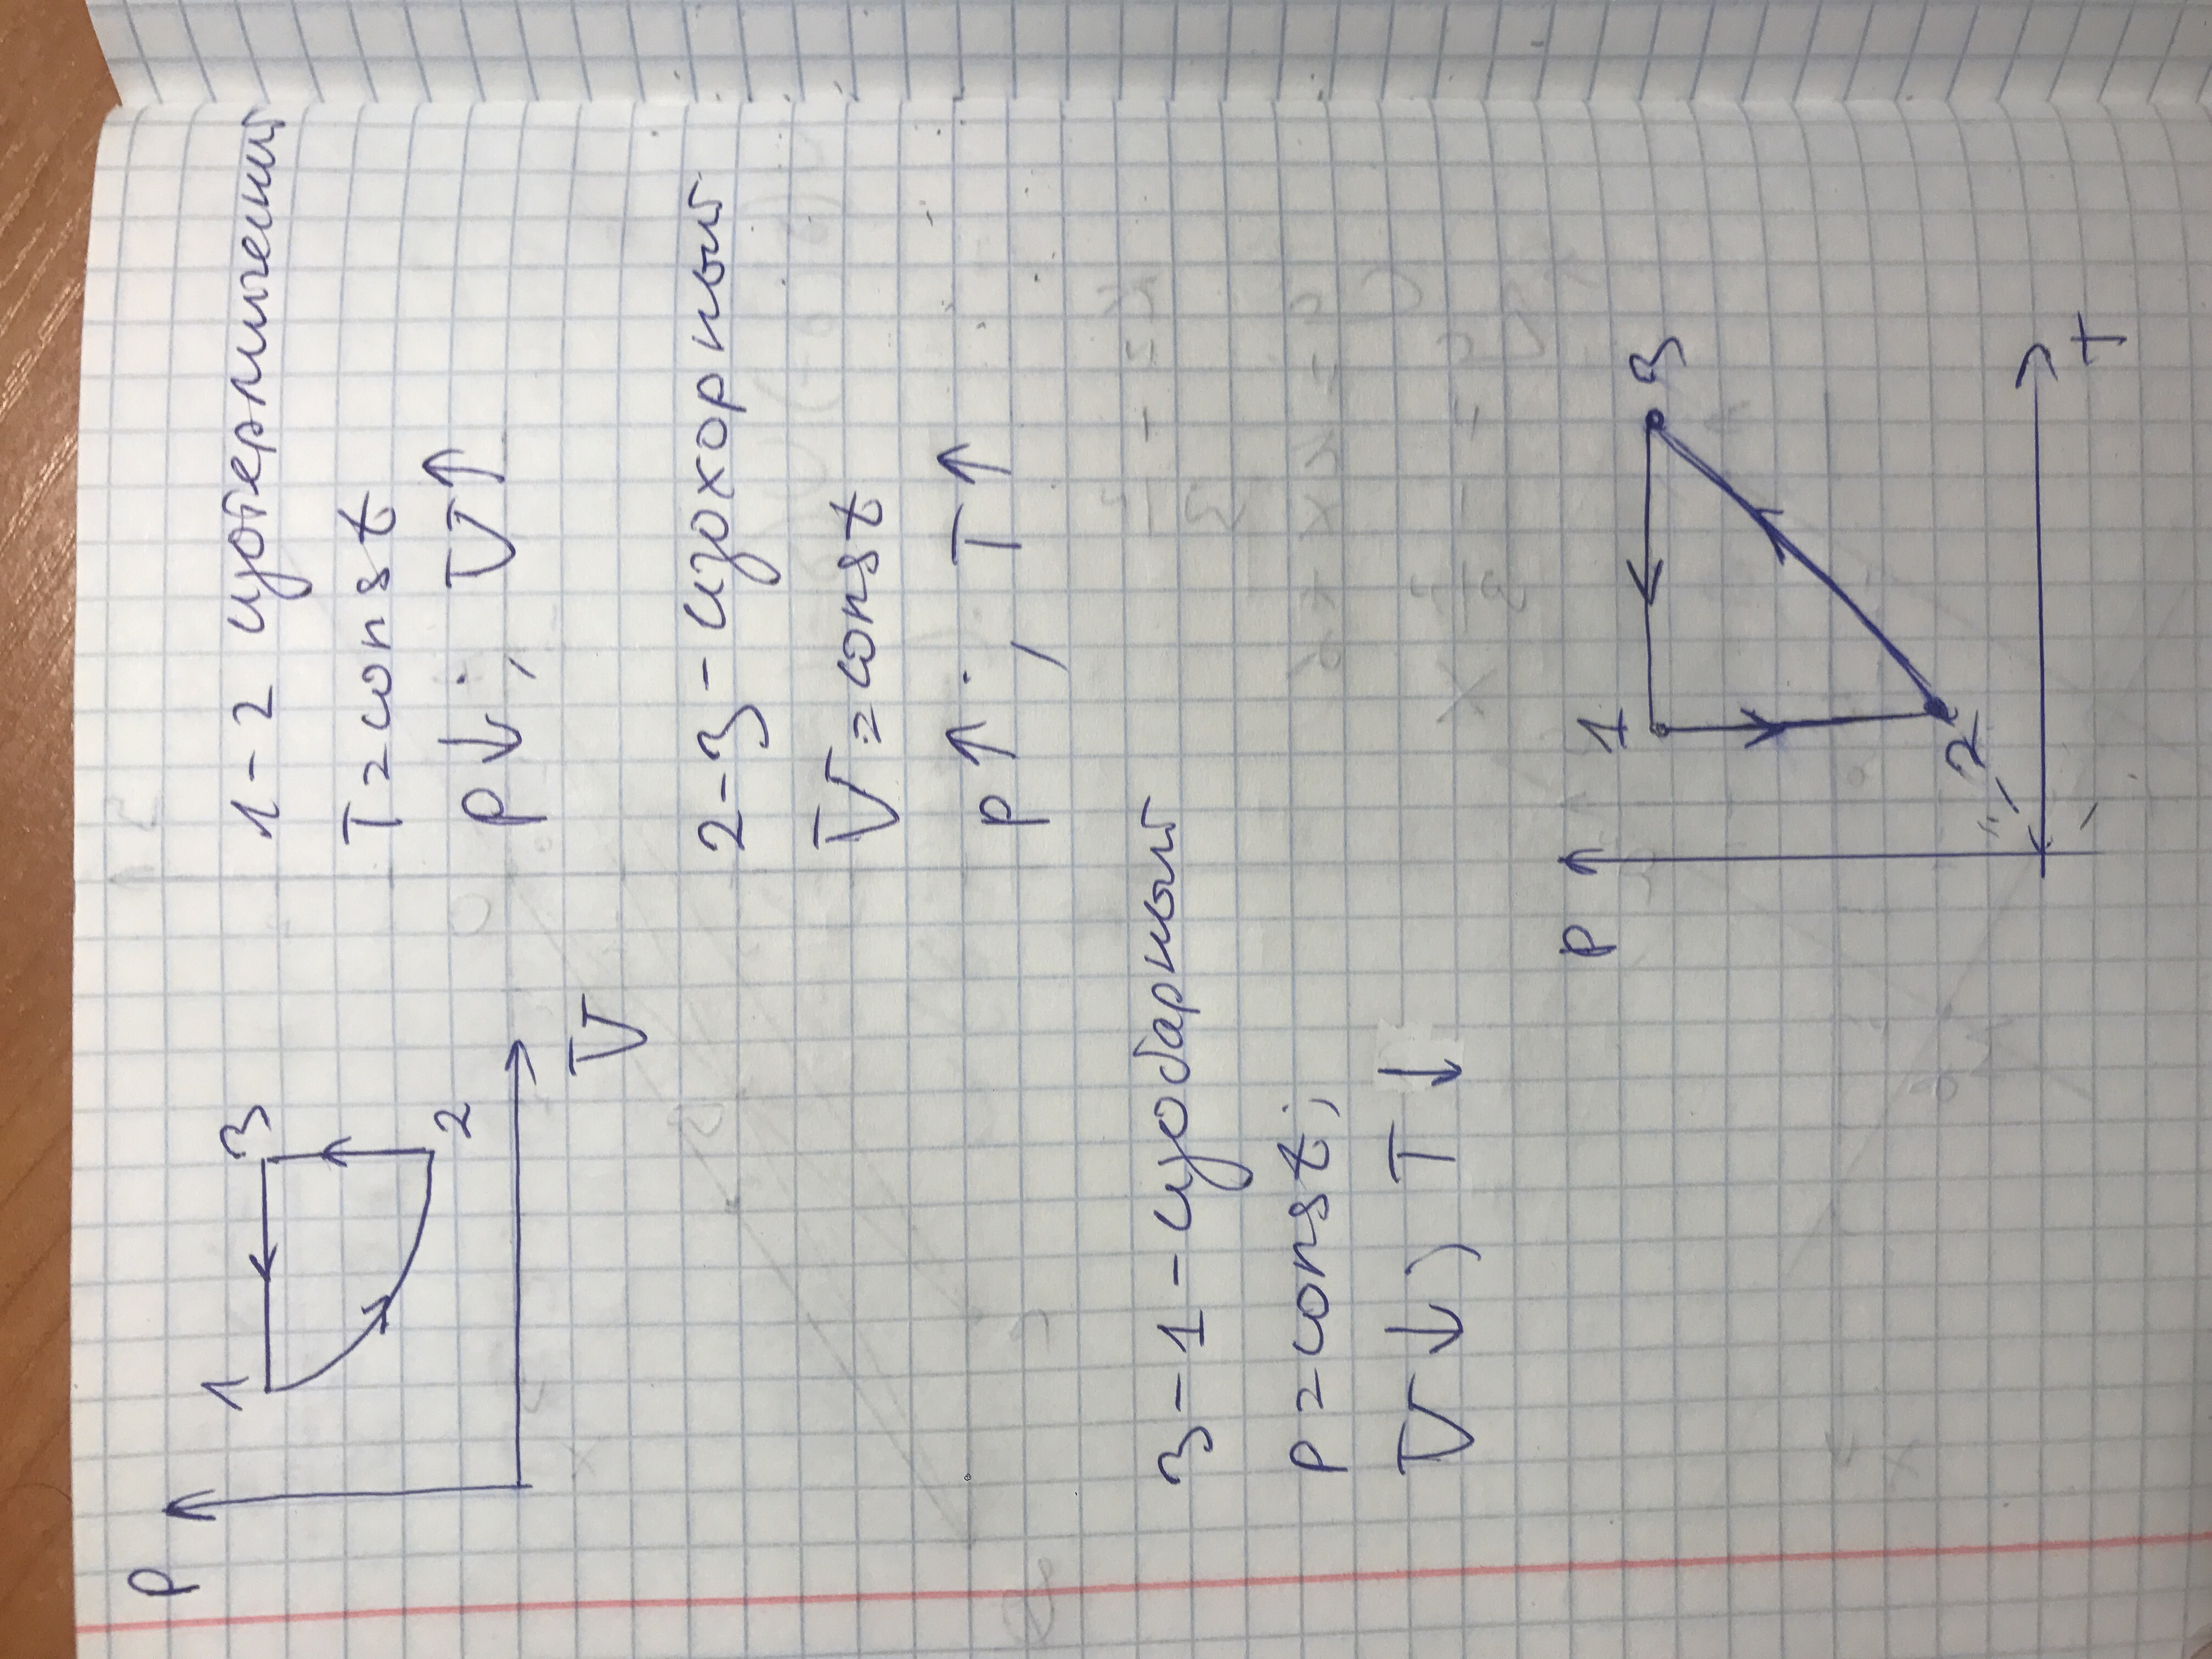 P
1
3
2
V
1-2 изотермический
T=const
P↓; V↑
2-3-изохорный
V=const
P↑; T↑
3-1-изобарный
P=const;
V↓; T↓
P
1
3
2
T